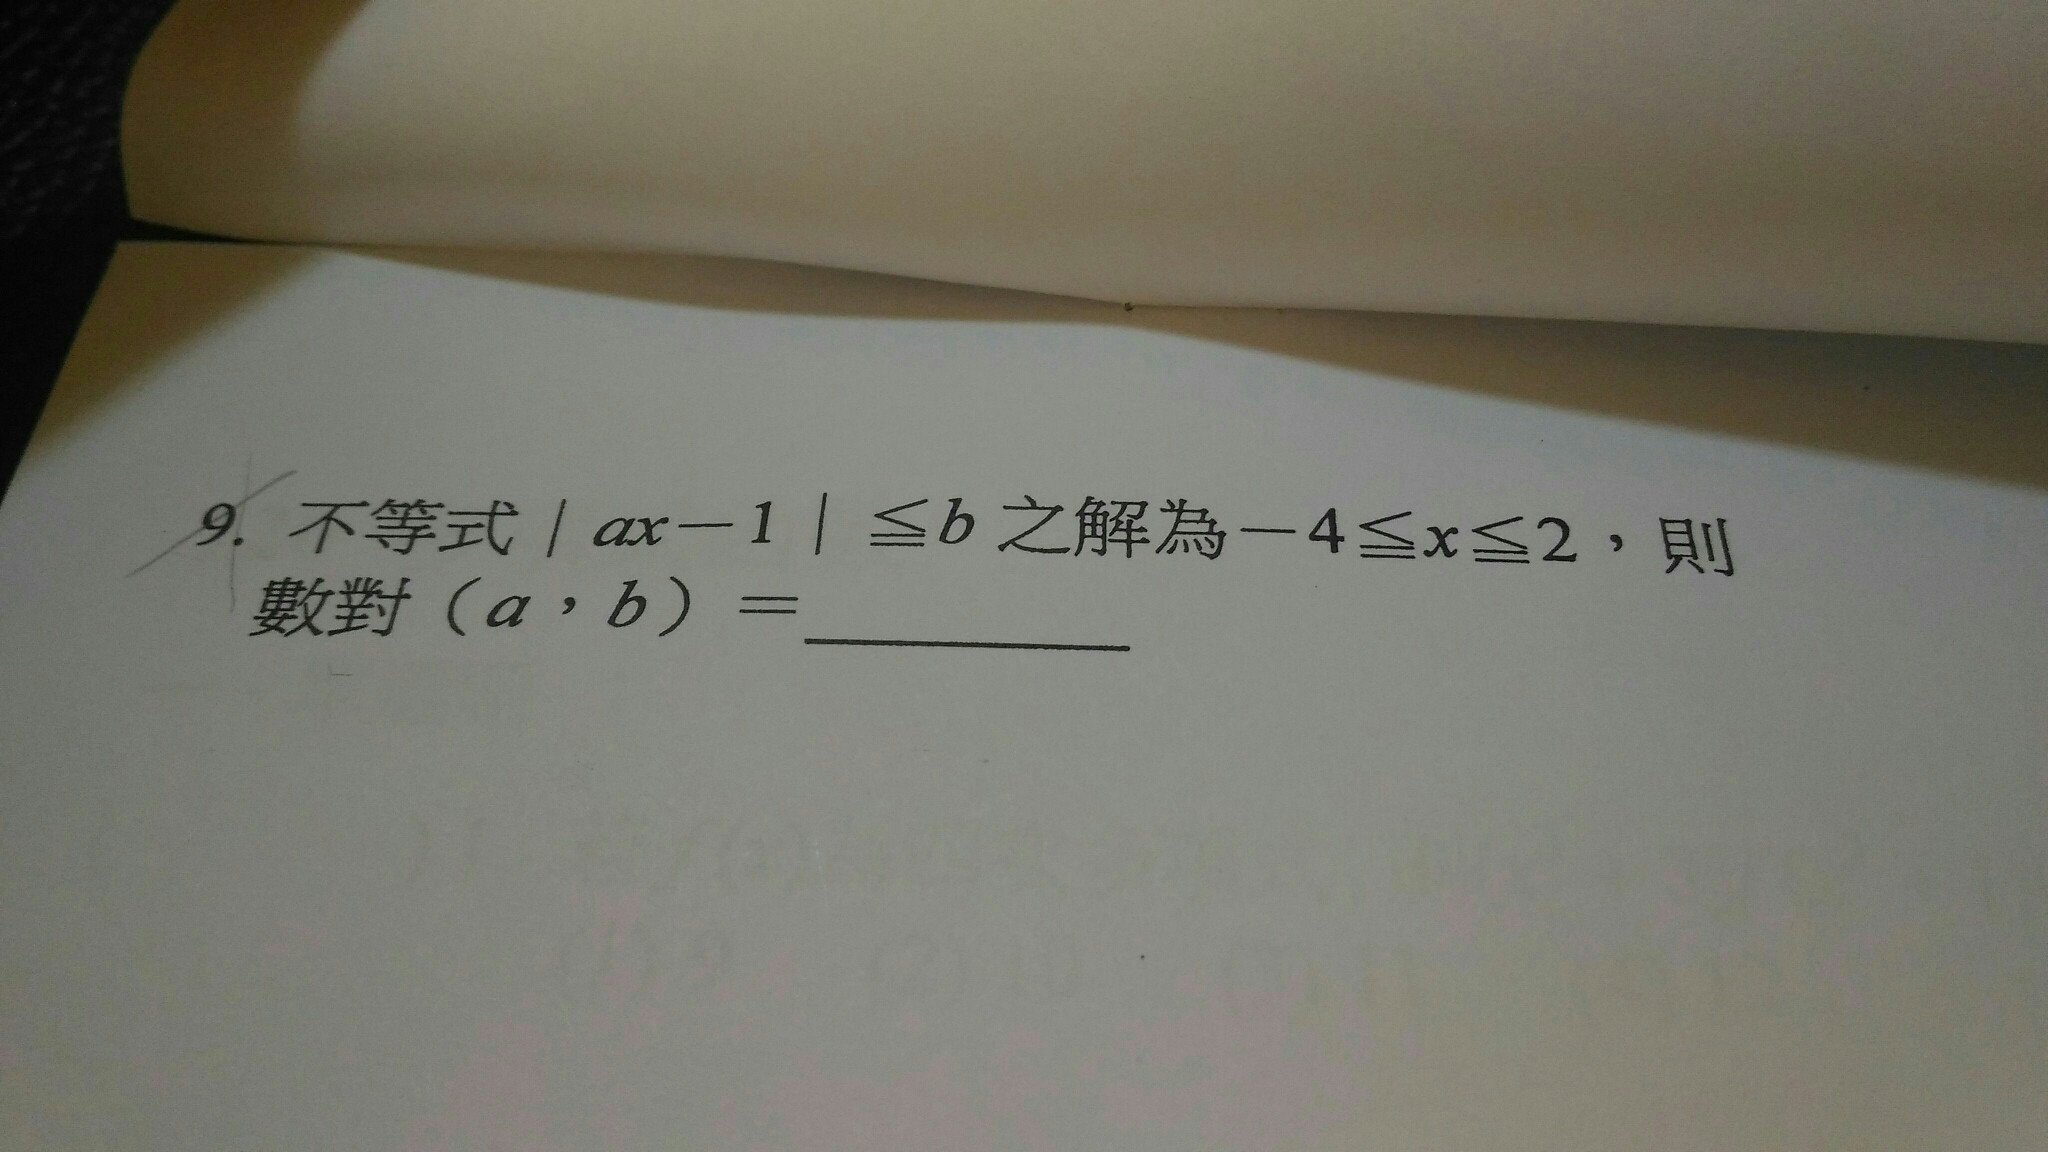 9. 不等式 | ax－1 | ≦b 之解為－4≦x≦2，則
數對（a，b）＝